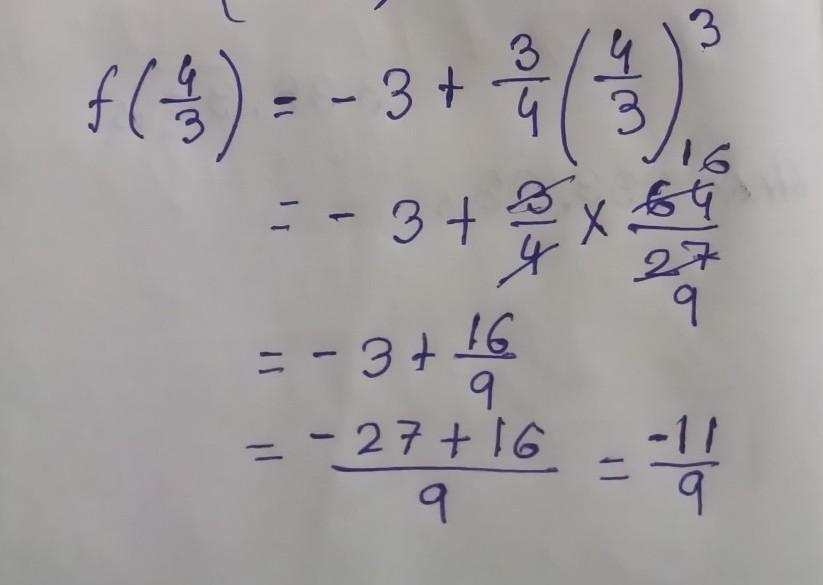 f(4/3) = -3 + 3/4 (4/3)^3
= -3 + 3/4 × 64/27 16 9
= -3 + 16/9
= -27 + 16/9 = -11/9